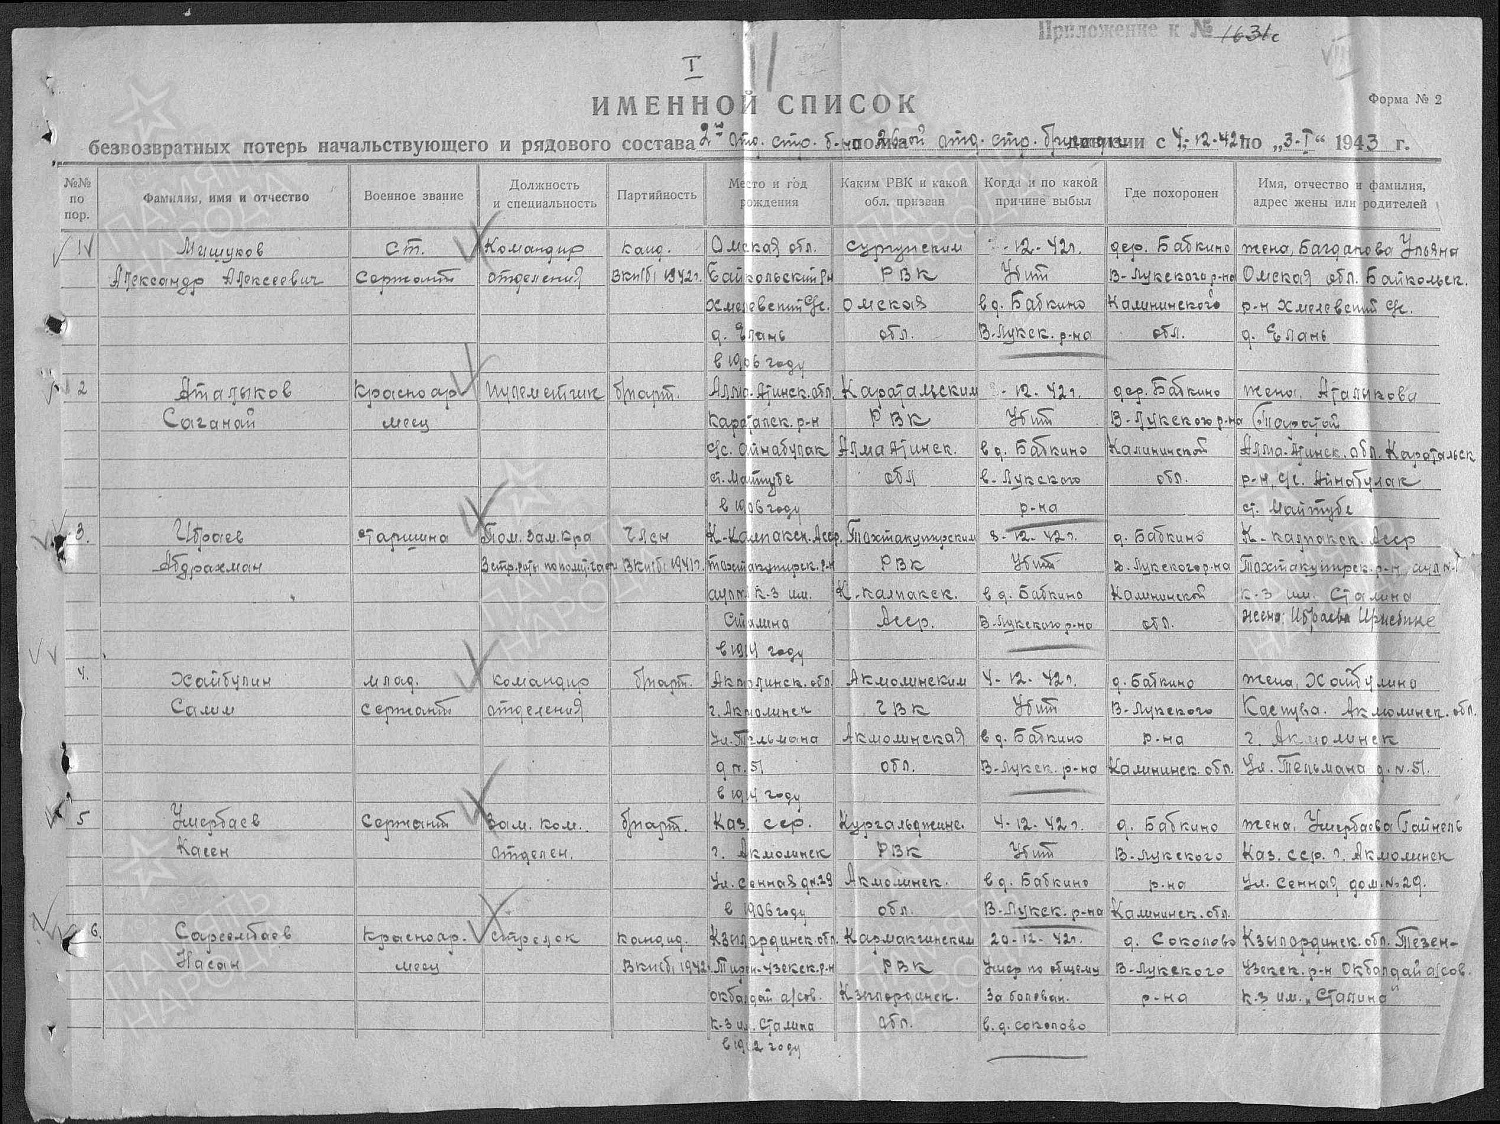 Приложение к № 1631с
I
ИМЕННОЙ СПИСОК
Форма № 2
безвозвратных потерь начальствующего и рядового состава 2го отд. стр. б-на полка отд. стр. бригады дивизии с 4-12-42 по „3-I“ 1943 г.
№№ по пор.
Фамилия, имя и отчество
Военное звание
Должность и специальность
Партийность
Место и год рождения
Каким РВК и какой обл. призван
Когда и по какой причине выбыл
Где похоронен
Имя, отчество и фамилия, адрес жены или родителей
1 Мишуков ст. Командир канд. Омская обл. Сургунским -12-42г. дер. Бабкино жена, Багдапова Ульяна
Александр Алексеевич Сержант отделения ВКП(б) 1942г. Байкольский р-н РВК Убит В-Лукского р-на Омская обл. Байкольск.
Хмелевский с/с. Омская в д. Бабкино Калининского р-н Хмелевский с/с.
д. Елань обл. В-Лукск. р-на обл. д. Елань
в 1906 году
2 Аталыков Красноар Пулеметчик б/парт. Алма-Атинск. обл. Каратальским -12-42г. дер. Бабкино жена, Аталукова
Саганай меец Каратальск. р-н РВК Убит В-Лукского р-на
с/с. Айнабулак Алма Атинск. в д. Бабкино Калининской Алма-Атинск. обл. Каратальск
ст. Майтубе обл в. Лукского обл. р-н, с/с. Айнабулак
в 1906 году р-на ст. Майтубе
3. Ибраев старшина Пом. зам. к-ра член К-Калпакск. Асср. Тахтакупырским 8-12-42г. д. Бабкино К-калпакск. Асср
Абдрахман 3 стр. роты по полит части ВКП(б) 1941г. Тахтакупырск. р-н РВК Убит В-Лукского р-на Тахтакупырск. р-н, аул №1
аул 1 к-з им. К-калпакск. в д. Бабкино Калининской к-з им. Сталина
Сталина Асср. В-Лукского р-на обл. жена: Ибраева
в 1914 году
4. Хайбулин млад. командир б/парт. Акмолинск. обл. Акмолинским 4-12-42г. д. Бабкино жена, Хайбулина
Салим сержант отделения г. Акмолинск ГВК Убит В-Лукского Акмолинск. обл.
Ул. Тельмана Акмолинская в д. Бабкино р-на г. Акмолинск
д № 51 обл. В-Лукск. р-на Калининск. обл. Ул. Тельмана д. № 51.
в 1914 году
5 Умербаев Сержант Зам. ком. б/парт. Каз. сср. Кургальджинс. 4-12-42г. д. Бабкино жена, Умербаева Гайнель
Касен отделен. г. Акмолинск РВК Убит В-Лукского Каз. сср. г. Акмолинск
Ул. Сенная д № 29 Акмолинск. в д. Бабкино р-на Ул. Сенная дом. № 29.
в 1906 году обл. В-Лукск. р-на Калининск. обл.
6. Сарсембаев Красноар. Стрелок кандид. Кзылординск. обл. Кармакчинским 20-12-42г. д. Соколово Кзылординск. обл. Тезен-
Насан меец ВКП(б) 1942 Тирен-Узекск. р-н РВК Умер по общему В-Лукского Узекск. р-н Окбалдай а/сов.
Окбалдай а/сов. Кзылординск. заболеван. р-на к-з им. „Сталина"
к-з им. Сталина обл. в. д. Соколово
в 1912 году